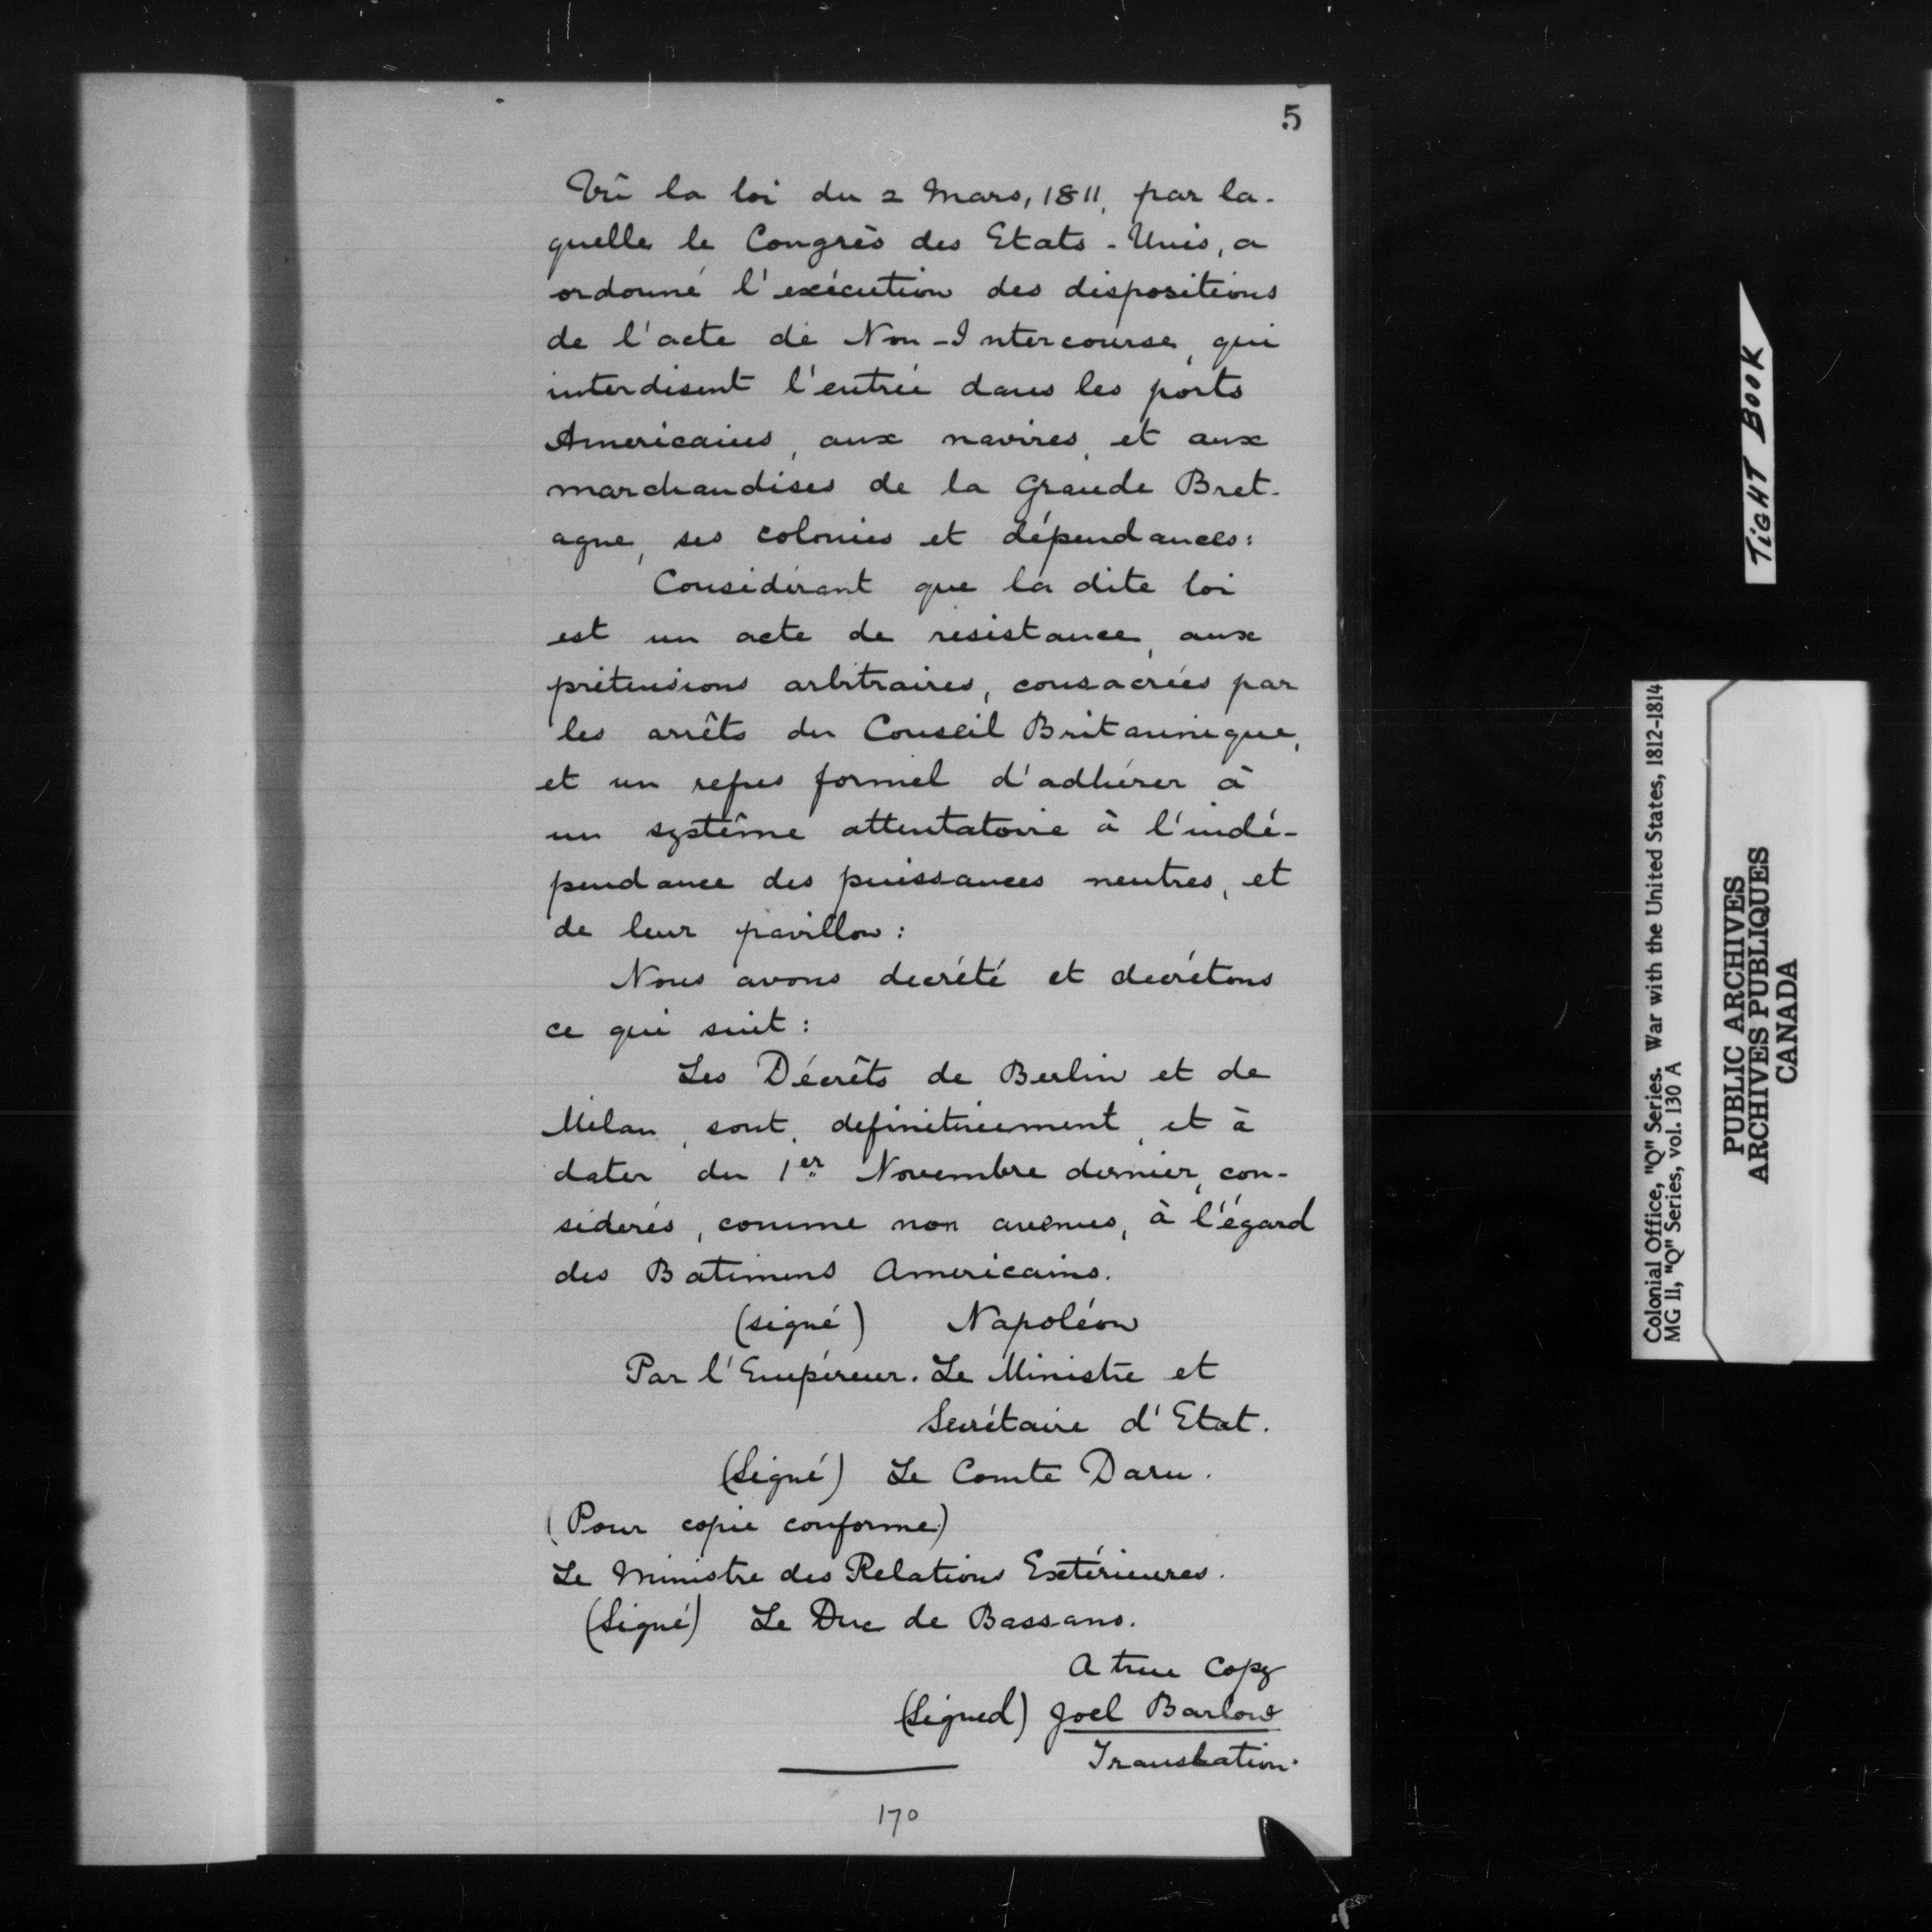 5
Vû la loi du 2 Mars, 1811, par la-
quelle le Congrès des Etats-Unis, a
ordonné l'exécution des dispositions
de l'acte de Non-Intercourse, qui
interdisent l'entrée dans les ports
Americains, aux navires, et aux
marchandises de la Grande Bret-
agne, ses colonies et dépendances:
Considérant que la dite loi
est un acte de resistance, aux
prétensions arbitraires, consacrées par
les arrêts du Conseil Britannique,
et un refus formel d'adhérer à
un système attentatoire à l'indé-
pendance des puissances neutres, et
de leur pavillon:
Nous avons decrété et decrétons
ce qui suit:
Les Décrêts de Berlin et de
Milan, sont, definitivement, et à
dater du 1er Novembre dernier, con-
siderés, comme non avenus, à l'égard
des Batimens Americains.
(signé) Napoléon
Par l'Empéreur. Le Ministre et
Secrétaire d'Etat.
(Signé) Le Comte Daru.
(Pour copie conforme)
Le Ministre des Relations Extérieures.
(Signé) Le Duc de Bassano.
A true Copy
(Signed) Joel Barlow
Translation.
170
TIGHT BOOK
Colonial Office, "Q" Series. War with the United States, 1812-1814
MG 11, "Q" Series, vol. 130 A
PUBLIC ARCHIVES
ARCHIVES PUBLIQUES
CANADA